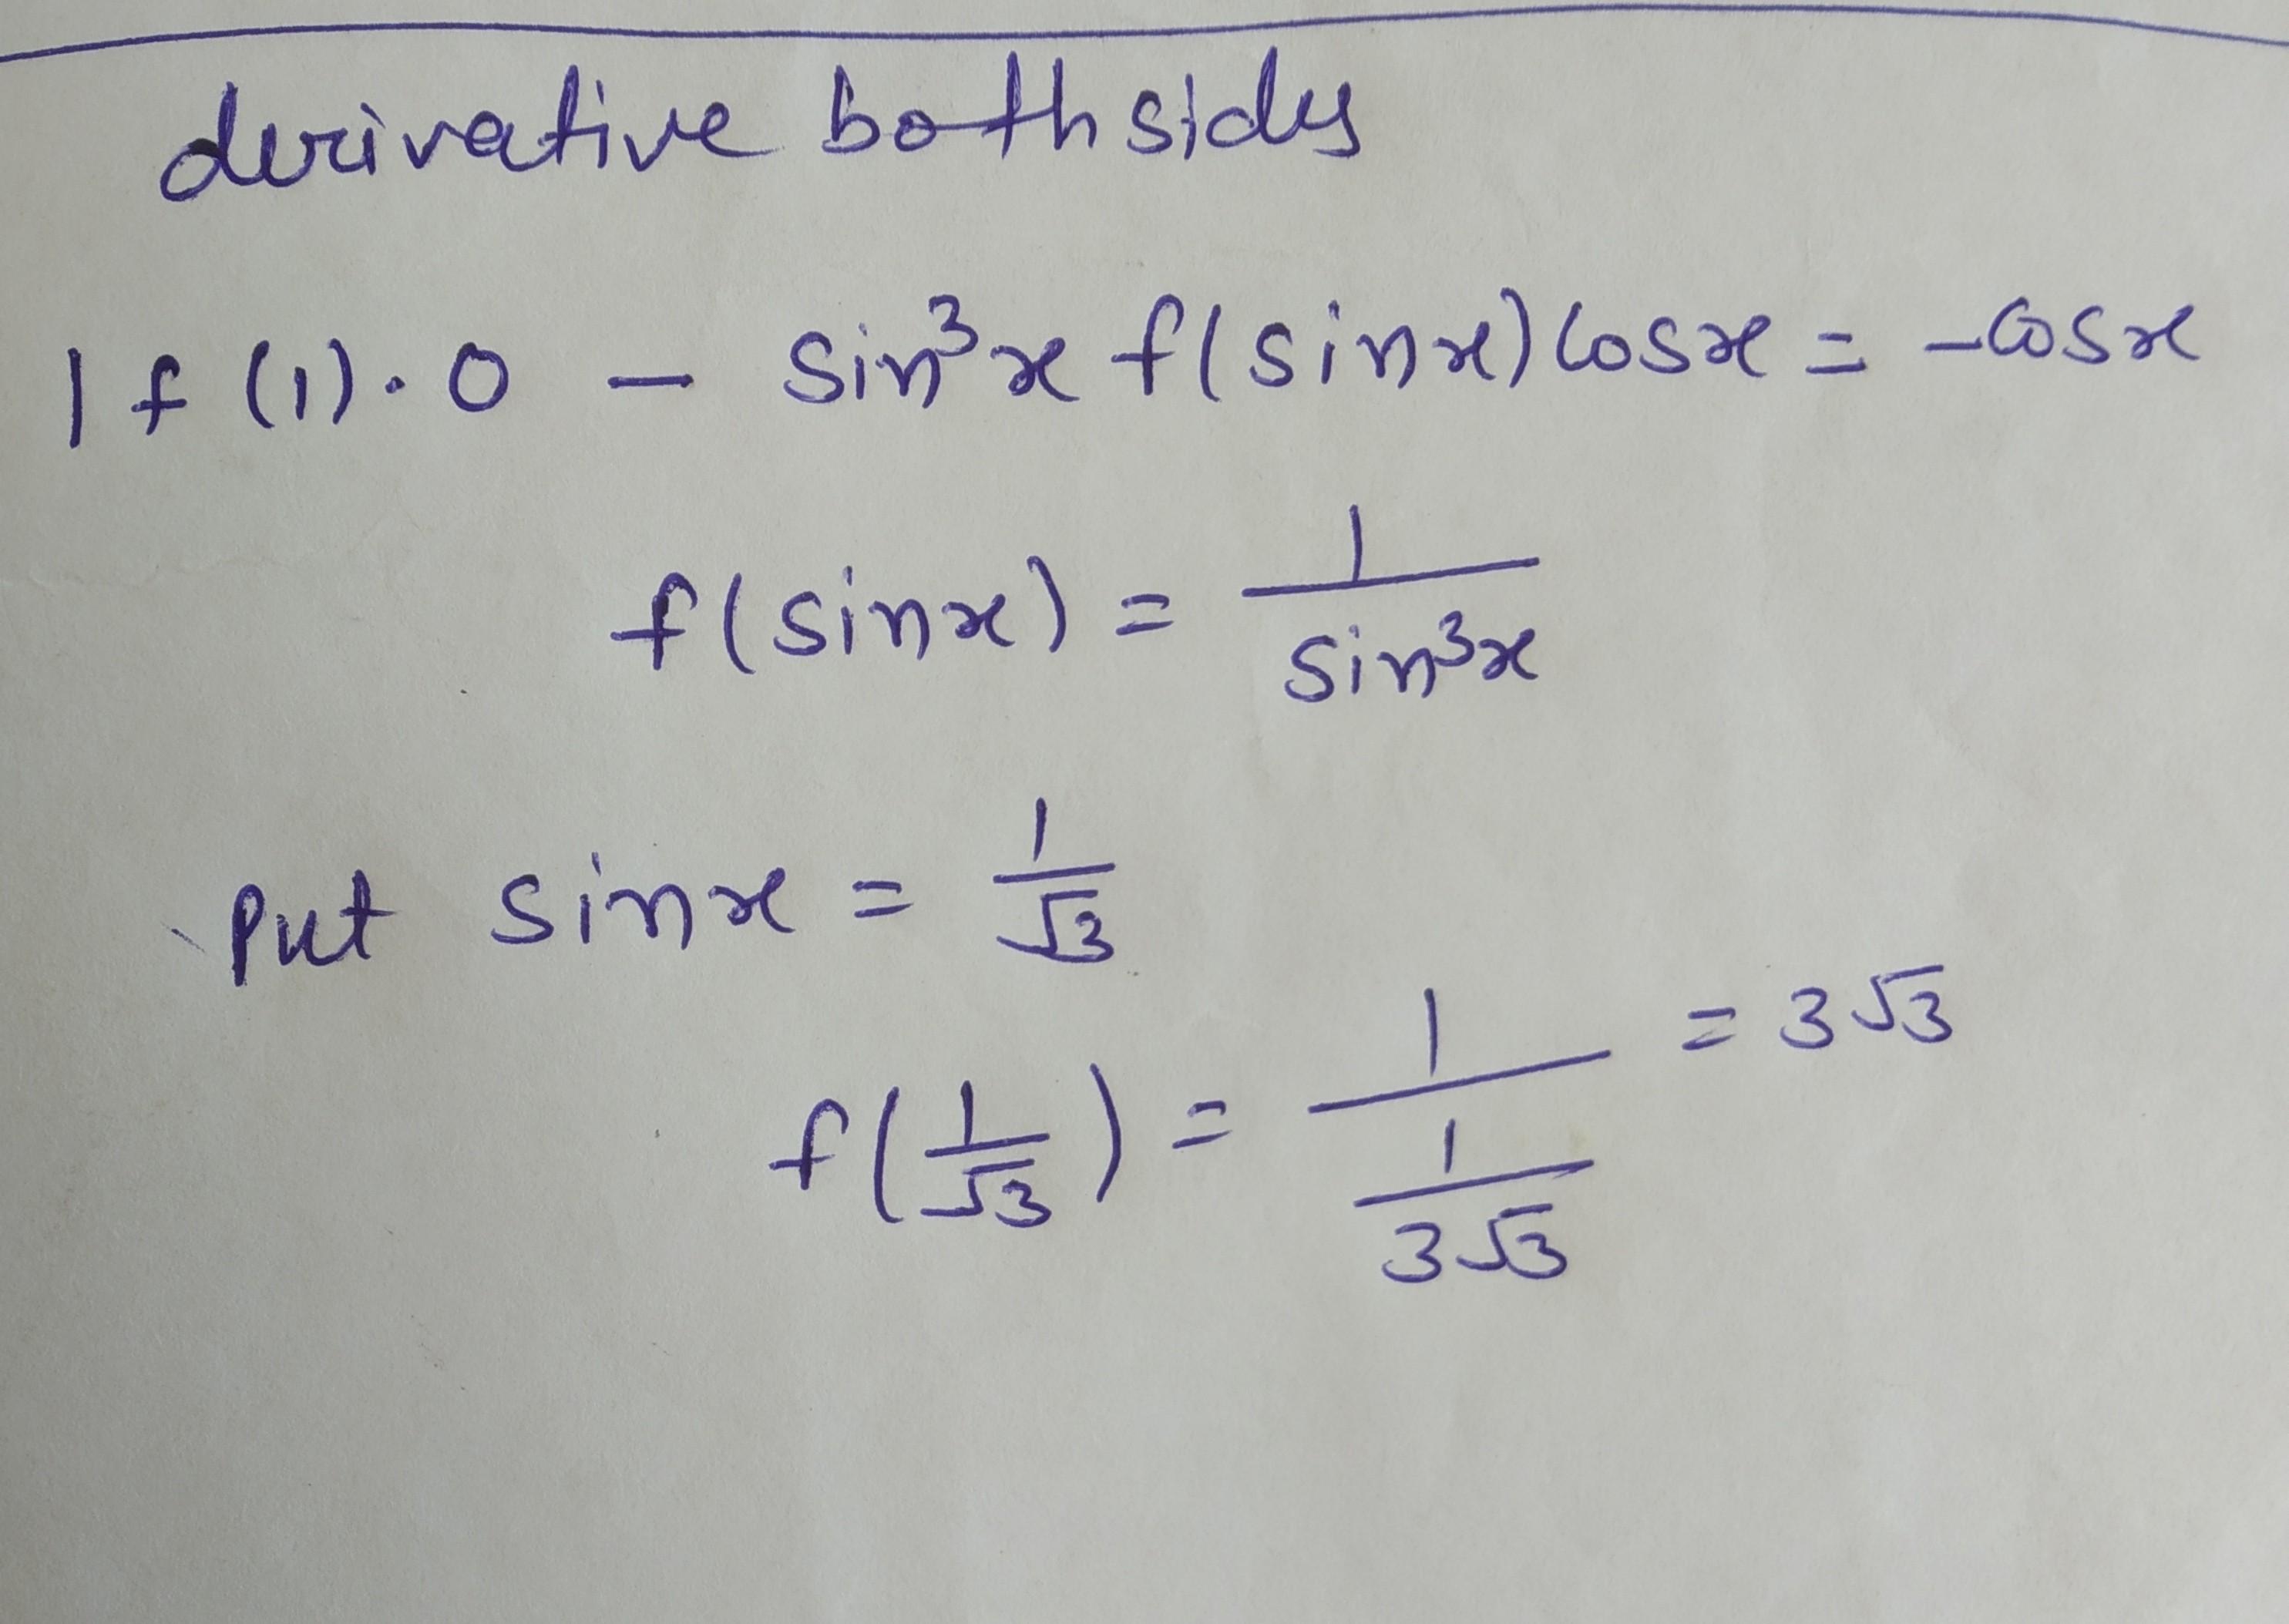 derivative both sides
1 f (1) . 0 - sin³x f(sinx) cosx = -cosx
f(sinx) = 1/sin³x
put sinx = 1/√3
f(1/√3) = 1/(1/3√3) = 3√3